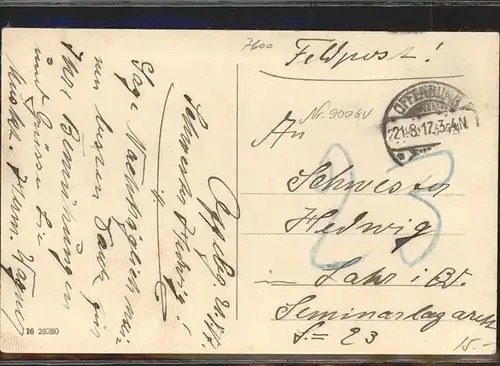 7600
Feldpost!
Nr. 9006V
OFFENBURG
21.8.17.3-4N.
An
Schwester
Hedwig
Lahr i. Bd.
Seminarlazarett
S = 23
15.-
23
Schwester Hedwig!
Sage Nachträglich mei-
nen besten Dank für
Ihre Bemühungen
und Grüsse Sie
Musket. Herm. Wagner
16 28280